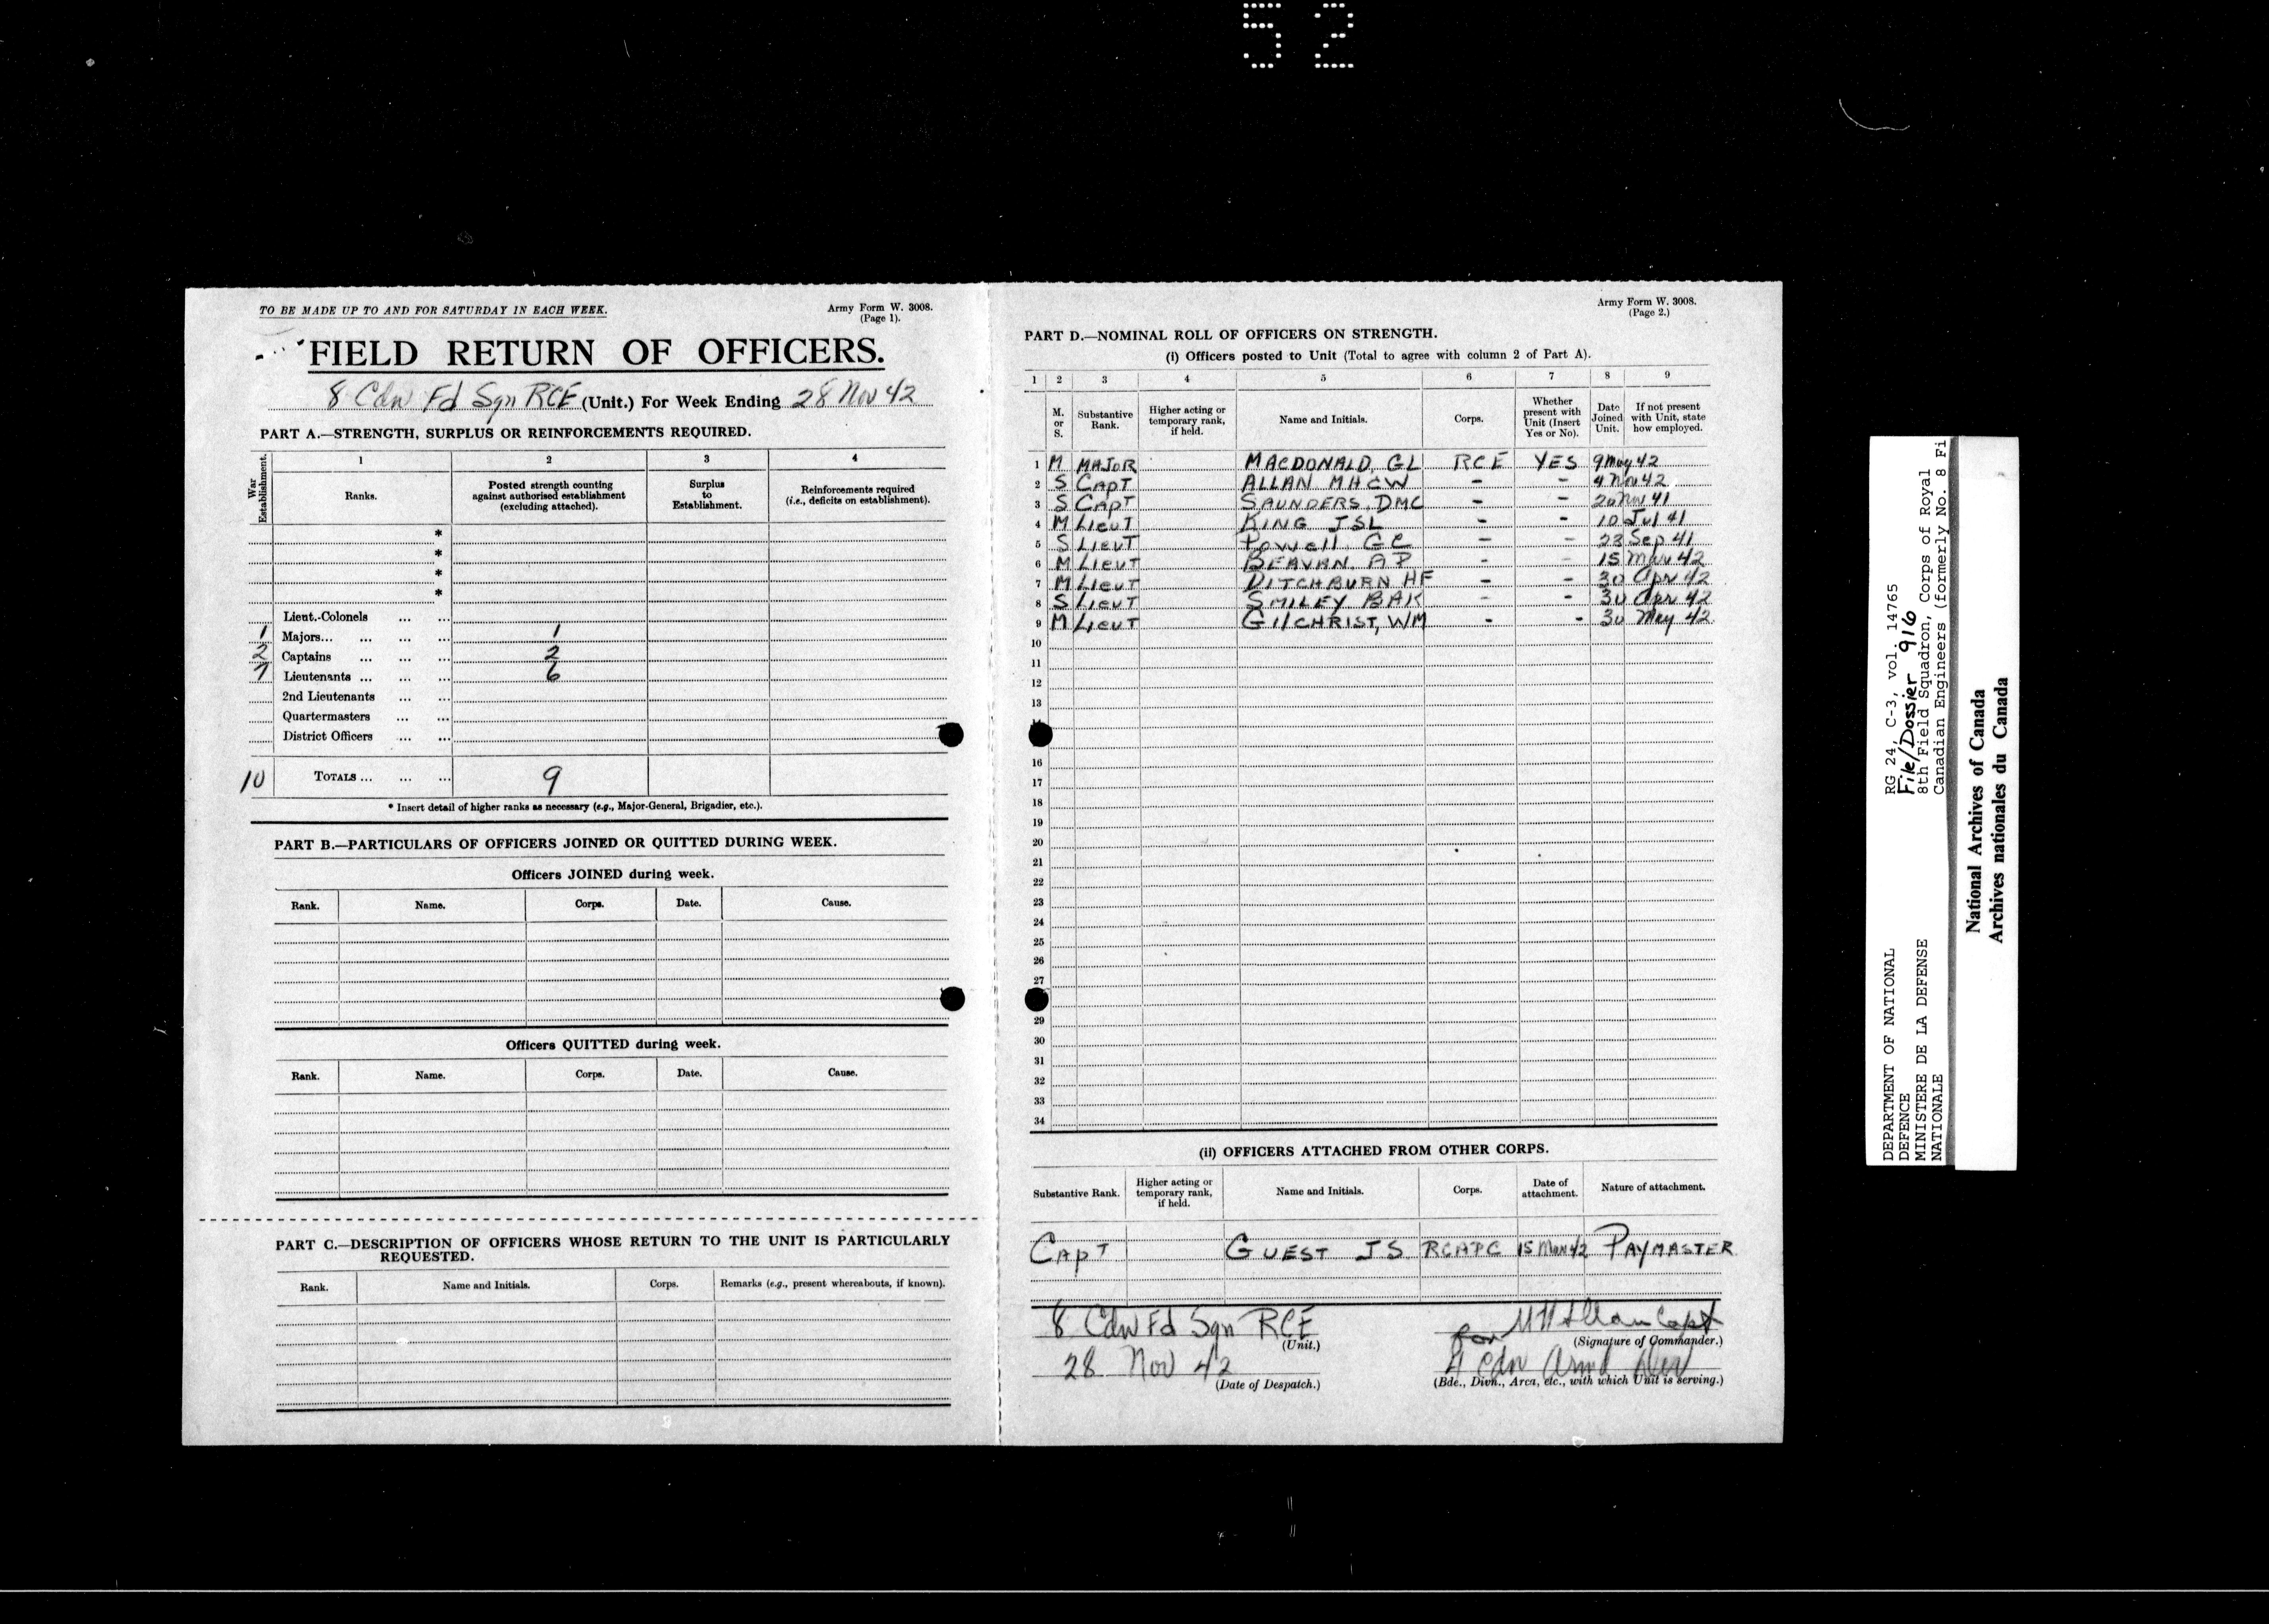 52
TO BE MADE UP TO AND FOR SATURDAY IN EACH WEEK.
Army Form W. 3008.
(Page 1).
FIELD RETURN OF OFFICERS.
8 Cdn Fd Sqn RCE (Unit.) For Week Ending 28 Nov 42
PART A.—STRENGTH, SURPLUS OR REINFORCEMENTS REQUIRED.
War Establishment.
1 2 3 4
Ranks.
Posted strength counting
against authorised establishment
(excluding attached).
Surplus
to
Establishment.
Reinforcements required
(i.e., deficits on establishment).
*
*
*
*
Lieut.-Colonels ... ...
1 Majors... ... ... ... 1
2 Captains ... ... ... 2
7 Lieutenants ... ... ... 6
2nd Lieutenants ... ...
Quartermasters ... ...
District Officers ... ...
10 TOTALS ... ... ... 9
* Insert detail of higher ranks as necessary (e.g., Major-General, Brigadier, etc.).
PART B.—PARTICULARS OF OFFICERS JOINED OR QUITTED DURING WEEK.
Officers JOINED during week.
Rank. Name. Corps. Date. Cause.
Officers QUITTED during week.
Rank. Name. Corps. Date. Cause.
PART C.—DESCRIPTION OF OFFICERS WHOSE RETURN TO THE UNIT IS PARTICULARLY
REQUESTED.
Rank. Name and Initials. Corps. Remarks (e.g., present whereabouts, if known).
Army Form W. 3008.
(Page 2.)
PART D.—NOMINAL ROLL OF OFFICERS ON STRENGTH.
(i) Officers posted to Unit (Total to agree with column 2 of Part A).
1 2 3 4 5 6 7 8 9
M.
or
S.
Substantive
Rank.
Higher acting or
temporary rank,
if held.
Name and Initials.
Corps.
Whether
present with
Unit (Insert
Yes or No).
Date
Joined
Unit.
If not present
with Unit, state
how employed.
1 M MAJOR MACDONALD, GL RCE YES 9 May 42
2 S CAPT ALLAN MHCW - - 4 Nov 42
3 S CAPT SAUNDERS, DMC - - 20 Nov 41
4 M Lieut KING JSL - - 10 Jul 41
5 S Lieut Powell GC - - 23 Sep 41
6 M Lieut BEAVAN AP - - 15 Mar 42
7 M Lieut DITCHBURN HF - - 30 Apr 42
8 S Lieut SMILEY BAK - - 30 Apr 42
9 M Lieut GILCHRIST, WM - - 30 May 42
10
11
12
13
16
17
18
19
20
21
22
23
24
25
26
27
29
30
31
32
33
34
(ii) OFFICERS ATTACHED FROM OTHER CORPS.
Substantive Rank.
Higher acting or
temporary rank,
if held.
Name and Initials.
Corps.
Date of
attachment.
Nature of attachment.
CAPT GUEST JS RCAPC 15 Mar 42 PAYMASTER
8 Cdn Fd Sqn RCE
(Unit.)
for MHAllan Capt
(Signature of Commander.)
28 Nov 42
(Date of Despatch.)
4 Cdn Armd Div
(Bde., Divn., Area, etc., with which Unit is serving.)
DEPARTMENT OF NATIONAL
DEFENCE
MINISTERE DE LA DEFENSE
NATIONALE
RG 24, C-3, vol. 14765
File/Dossier 916
8th Field Squadron, Corps of Royal
Canadian Engineers (formerly No. 8 Fi
National Archives of Canada
Archives nationales du Canada